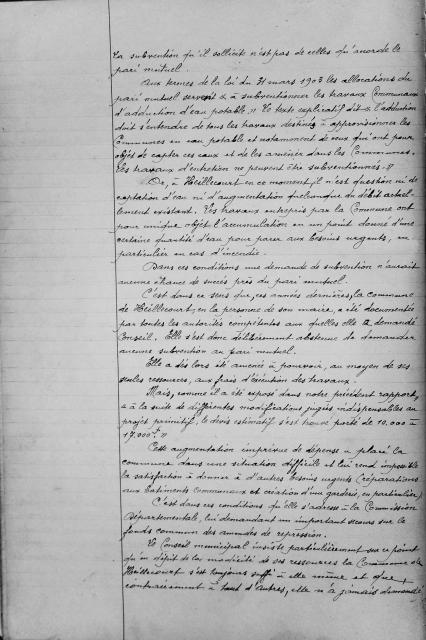 La subvention qu'il sollicite n'est pas de celles qu'accorde le
pari mutuel.
Aux termes de la loi du 31 mars 1903 les allocations du
pari mutuel servent « à subventionner les travaux Communaux
d'adduction d'eau potable. » Le texte explicatif dit « l'adduction
doit s'entendre de tous les travaux destinés à approvisionner les
Communes en eau potable et notamment de ceux qui ont pour
objet de capter ces eaux et de les amener dans les Communes.
Les travaux d'entretien ne peuvent être subventionnés. »
Or, à Heillecourt en ce moment, il n'est question ni de
captation d'eau ni d'augmentation quelconque du débit actuel-
lement existant. Les travaux entrepris par la Commune ont
pour unique objet l'accumulation en un point donné d'une
certaine quantité d'eau pour parer aux besoins urgents, en
particulier en cas d'incendie.
Dans ces conditions une demande de subvention n'aurait
aucune chance de succès près du pari mutuel.
C'est dans ce sens que, ces années dernières, la commune
de Heillecourt, en la personne de son maire, a été documentée
par toutes les autorités compétentes aux quelles elle a demandé
Conseil. Elle s'est donc délibérément abstenue de demander
aucune subvention au pari mutuel.
Elle a dès lors été amenée à pourvoir, au moyen de ses
seules ressources, aux frais d'exécution des travaux.
Mais, comme il a été exposé dans notre précédent rapport,
« à la suite de différentes modifications jugées indispensables au
projet primitif, le devis estimatif s'est trouvé porté de 10.000 à
17.000f. »
Cette augmentation imprévue de dépense a placé la
commune dans une situation difficile et lui rend impossible
la satisfaction à donner à d'autres besoins urgents (réparations
aux bâtiments Communaux et création d'une garderie, en particulier)
C'est dans ces conditions qu'elle s'adresse à la Commission
Départementale, lui demandant un important secours sur le
fonds commun des amendes de répression.
Le Conseil municipal insiste particulièrement sur ce point
qu'en dépit de la modicité de ses ressources la Commune de
Heillecourt s'est toujours suffi à elle même et que,
contrairement à tant d'autres, elle n'a jamais demandé